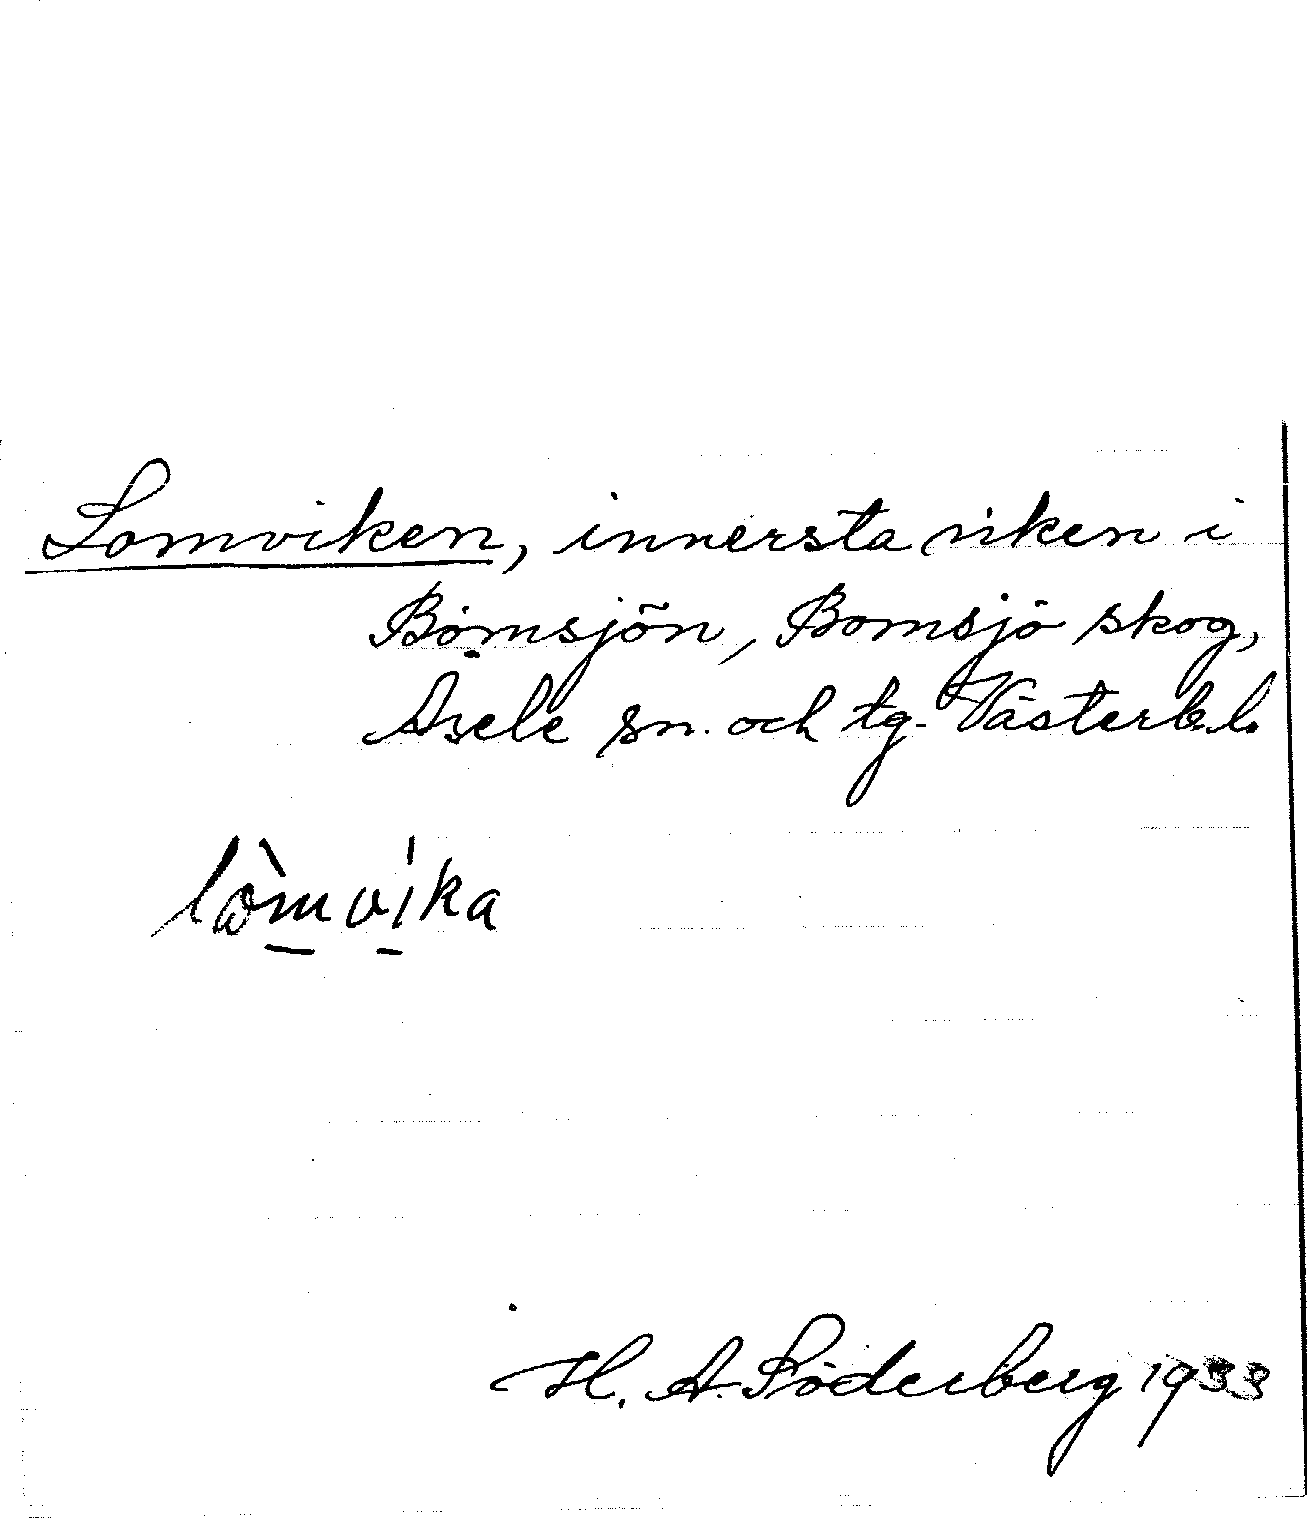 Lomviken, innersta viken i
Bomsjön, Bomsjö skog,
Åsele sn. och tg. Västerb.l.
lòmvika
H. A. Söderberg 1933